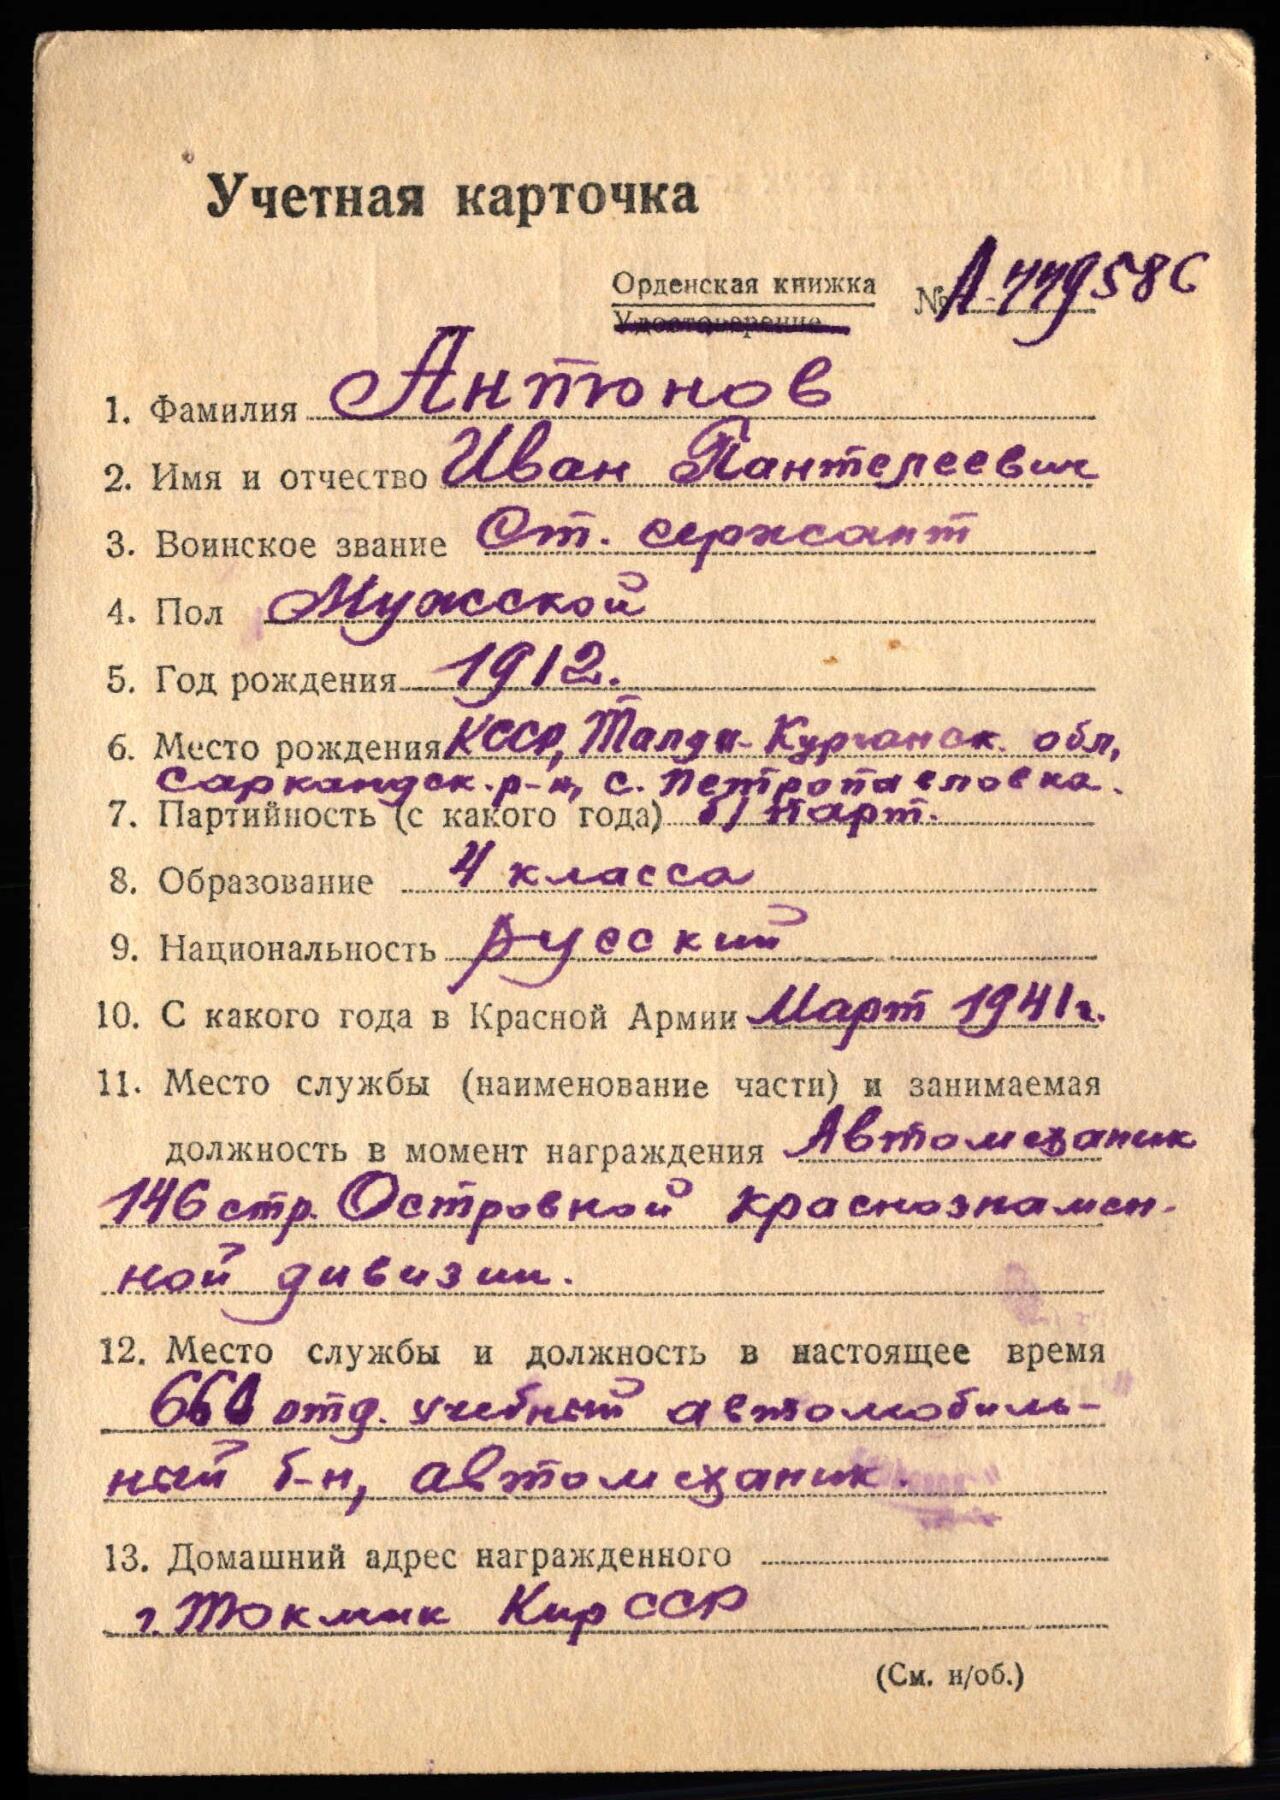 Учетная карточка
Орденская книжка № А-779586
Удостоверение
1. Фамилия Антонов
2. Имя и отчество Иван Пантелеевич
3. Воинское звание Ст. сержант
4. Пол Мужской
5. Год рождения 1912.
6. Место рождения КССР, Талды-Курганск. обл,
Саркандск. р-н, с. Петропавловка.
7. Партийность (с какого года) б/парт.
8. Образование 4 класса
9. Национальность русский
10. С какого года в Красной Армии Март 1941г.
11. Место службы (наименование части) и занимаемая
должность в момент награждения Автомеханик
146 стр. Островной краснознамен-
ной дивизии.
12. Место службы и должность в настоящее время
660 отд. учебный автомобиль-
ный б-н, автомеханик.
13. Домашний адрес награжденного
г. Токмак Кир ССР
(См. н/об.)